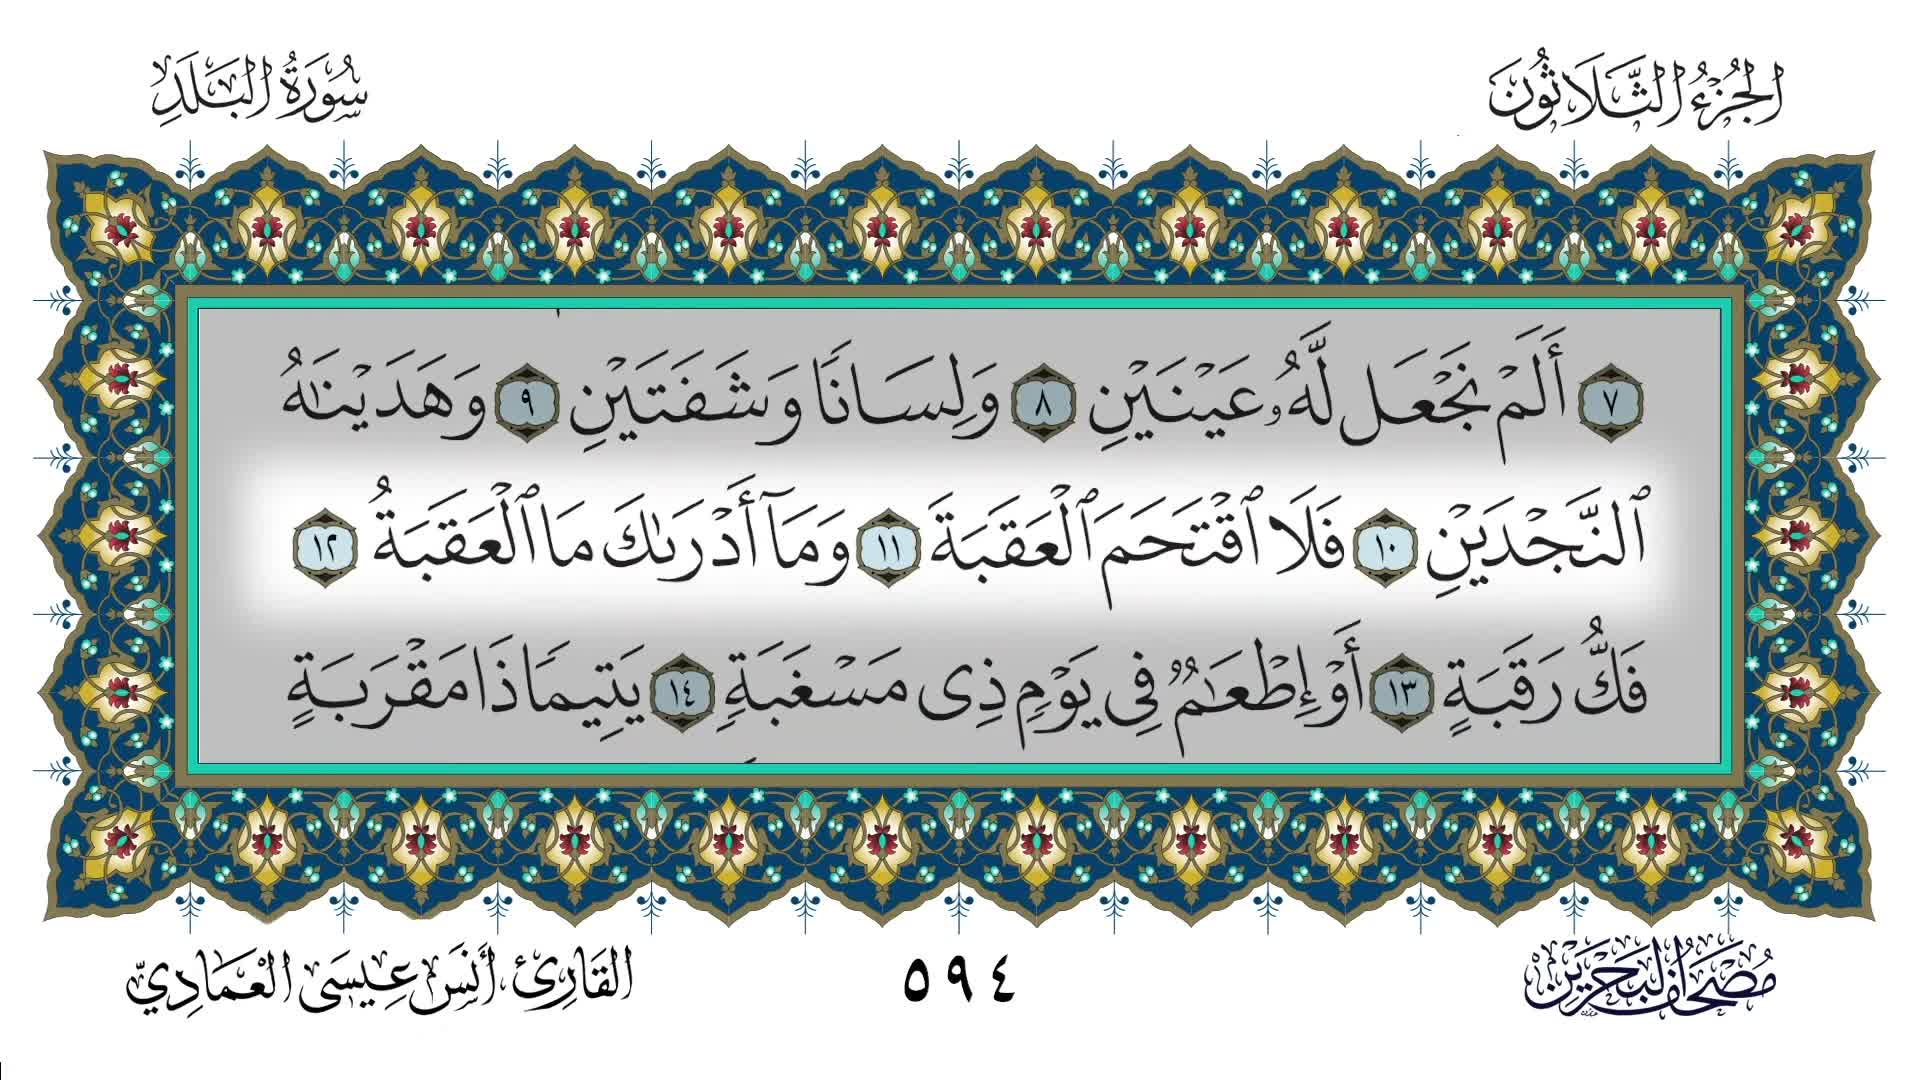 الجُزْءُ الثَّلَاثُونَ
سُورَةُ البَلَدِ
٧ أَلَمْ نَجْعَل لَّهُۥ عَيْنَيْنِ ٨ وَلِسَانًا وَشَفَتَيْنِ ٩ وَهَدَيْنَٰهُ
ٱلنَّجْدَيْنِ ١٠ فَلَا ٱقْتَحَمَ ٱلْعَقَبَةَ ١١ وَمَآ أَدْرَىٰكَ مَا ٱلْعَقَبَةُ ١٢
فَكُّ رَقَبَةٍ ١٣ أَوْ إِطْعَٰمٌ فِى يَوْمٍ ذِى مَسْغَبَةٍ ١٤ يَتِيمًا ذَا مَقْرَبَةٍ
مُصْحَفُ البَحْرَيْنِ
٥٩٤
القَارِئ، أَنَس عِيسَى العْمَادِيّ